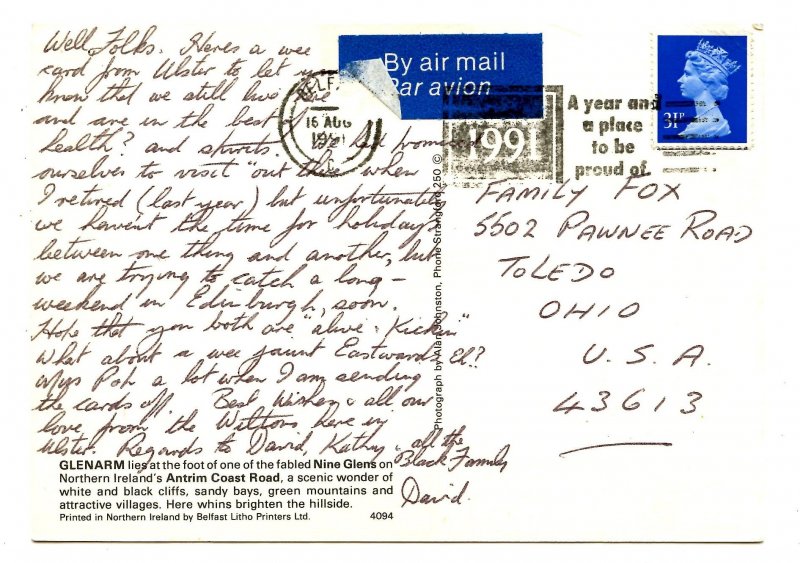 Well Folks. Heres a wee
card from Ulster to let you
know that we still live here
and are in the best of
health? and spirits. We had promised
ourselves to visit "out there" when
I retired (last year) but unfortunately
we havent the time for holidays
between one thing and another, but
we are trying to catch a long-
weekend in Edinburgh, soon.
Hope that you both are "alive & Kickin"
What about a wee jaunt Eastwards El?
Pop a lot when I am sending
the cards off. Best Wishes & all our
love from the Wiltons here in
Ulster. Regards to David, Kathy & all the
Black Family
David.
GLENARM lies at the foot of one of the fabled Nine Glens on
Northern Ireland's Antrim Coast Road, a scenic wonder of
white and black cliffs, sandy bays, green mountains and
attractive villages. Here whins brighten the hillside.
Printed in Northern Ireland by Belfast Litho Printers Ltd.
4094
Photograph by Alan Johnston, Phone Strangford 250 ©
By air mail
Par avion
BELFA
16 AUG
1991
A year and
a place
to be
proud of.
31P
FAMILY FOX
5502 PAWNEE ROAD
TOLEDO
OHIO
U.S.A.
43613